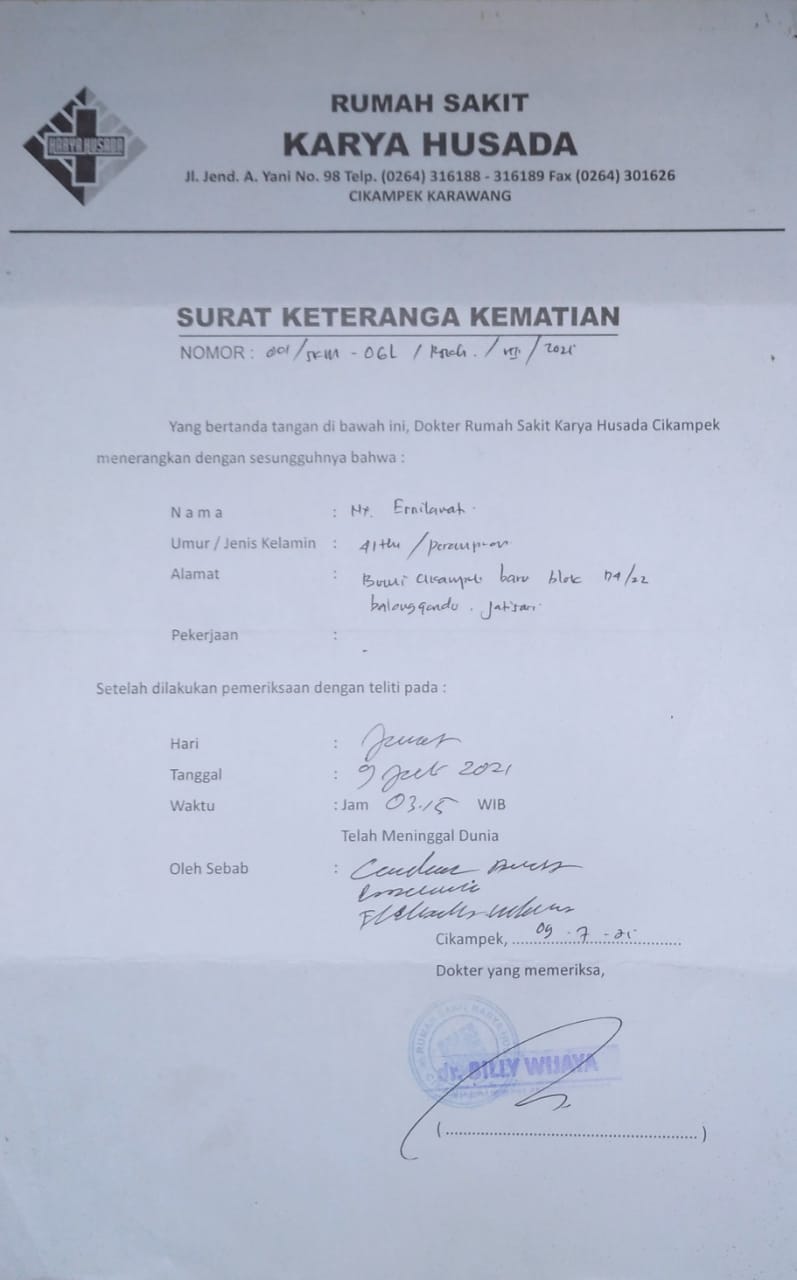 KARYA HUSADA
RUMAH SAKIT
KARYA HUSADA
Jl. Jend. A. Yani No. 98 Telp. (0264) 316188 - 316189 Fax (0264) 301626
CIKAMPEK KARAWANG
SURAT KETERANGA KEMATIAN
NOMOR : 001/SKM - OGL / / VII / 2021
Yang bertanda tangan di bawah ini, Dokter Rumah Sakit Karya Husada Cikampek
menerangkan dengan sesungguhnya bahwa :
Nama : Ny. Ernilawati
Umur / Jenis Kelamin : 41 thn / perempuan
Alamat : Bumi Cikampek baru blok /22
balonggandu . Jatisari
Pekerjaan : -
Setelah dilakukan pemeriksaan dengan teliti pada :
Hari : Jumat
Tanggal : 9 Juli 2021
Waktu : Jam 03.15 WIB
Telah Meninggal Dunia
Oleh Sebab :
Cikampek, 09 - 7 - 21
Dokter yang memeriksa,
dr. BILLY WIJAYA
(..........................................................)